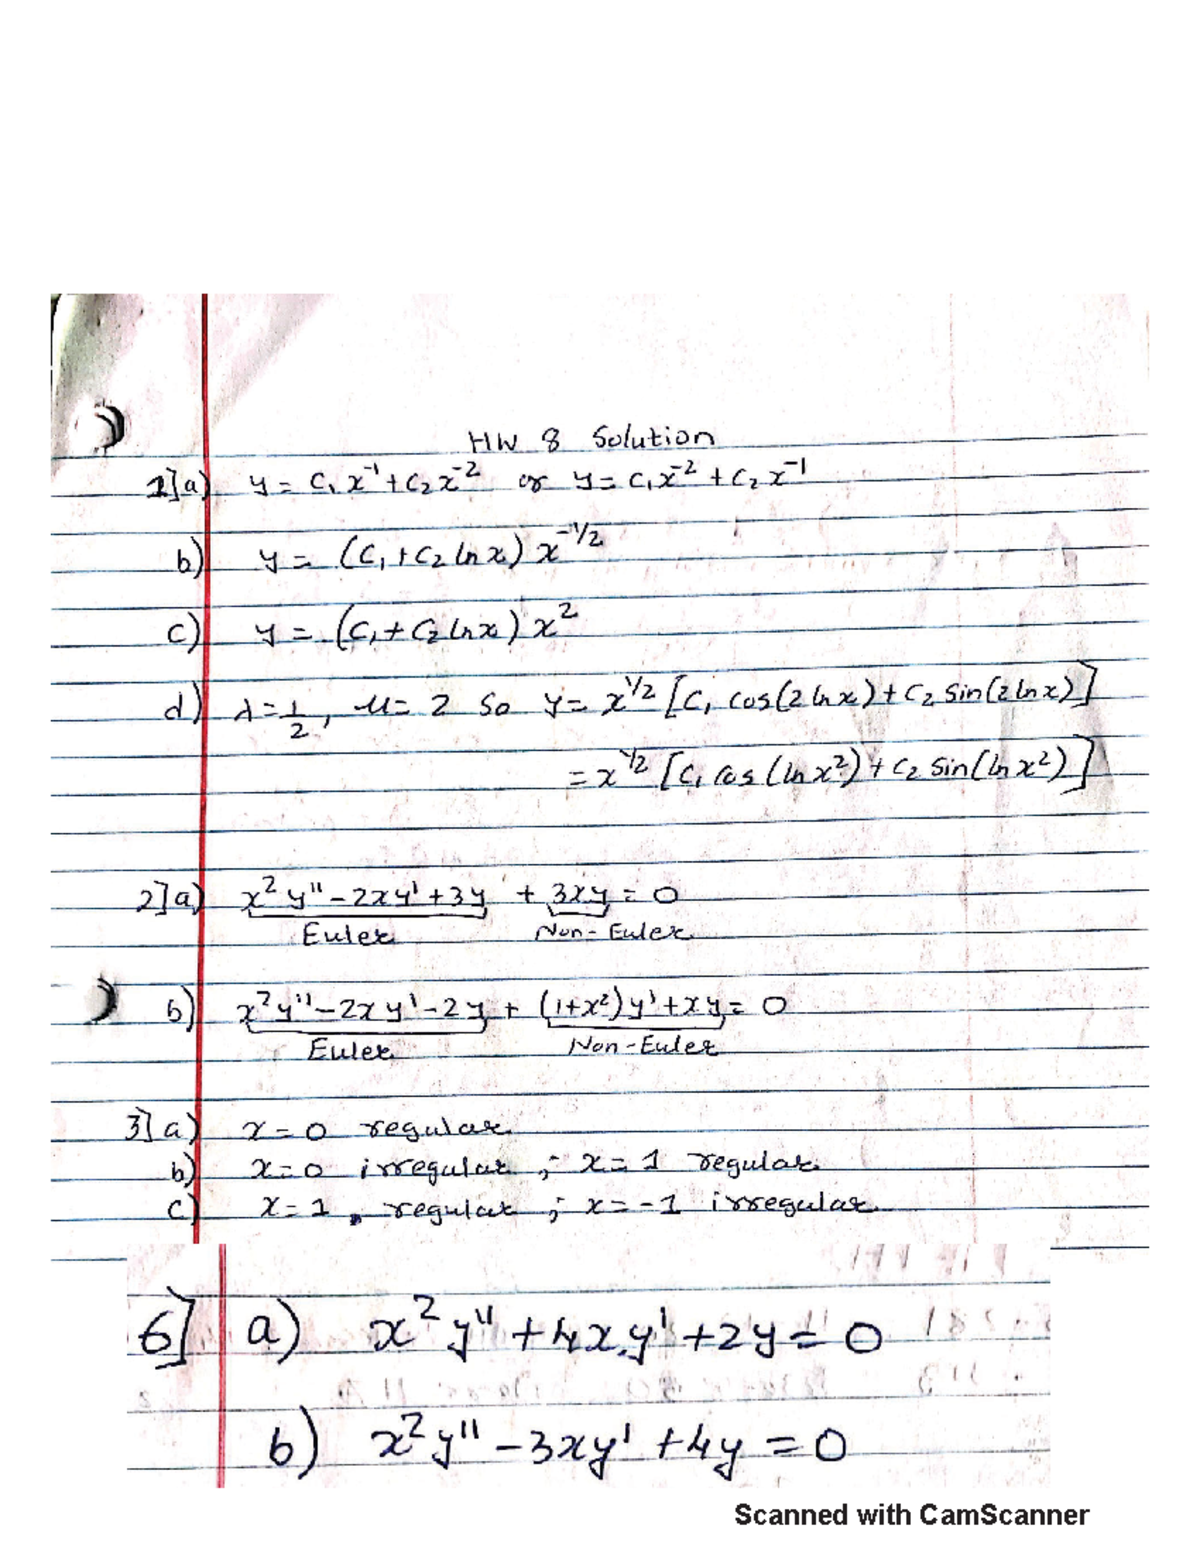 HW 8 Solution
1] a) y = C₁x⁻¹ + C₂x⁻² or y = C₁x⁻² + C₂x⁻¹
b) y = (C₁ + C₂ ln x) x^(-1/2)
c) y = (C₁ + C₂ ln x) x²
d) λ = 1/2, μ = 2 So y = x^(1/2) [C₁ cos(2 ln x) + C₂ sin(2 ln x)]
= x^(1/2) [C₁ cos(ln x²) + C₂ sin(ln x²)]
2] a) x²y'' - 2xy' + 3y + 3xy = 0
Euler Non-Euler
b) x²y'' - 2xy' - 2y + (1+x²)y' + xy = 0
Euler Non-Euler
3] a) x = 0 regular
b) x = 0 irregular ; x = 1 regular
c) x = 1, regular ; x = -1 irregular
6] a) x²y'' + 4xy' + 2y = 0
b) x²y'' - 3xy' + 4y = 0
Scanned with CamScanner